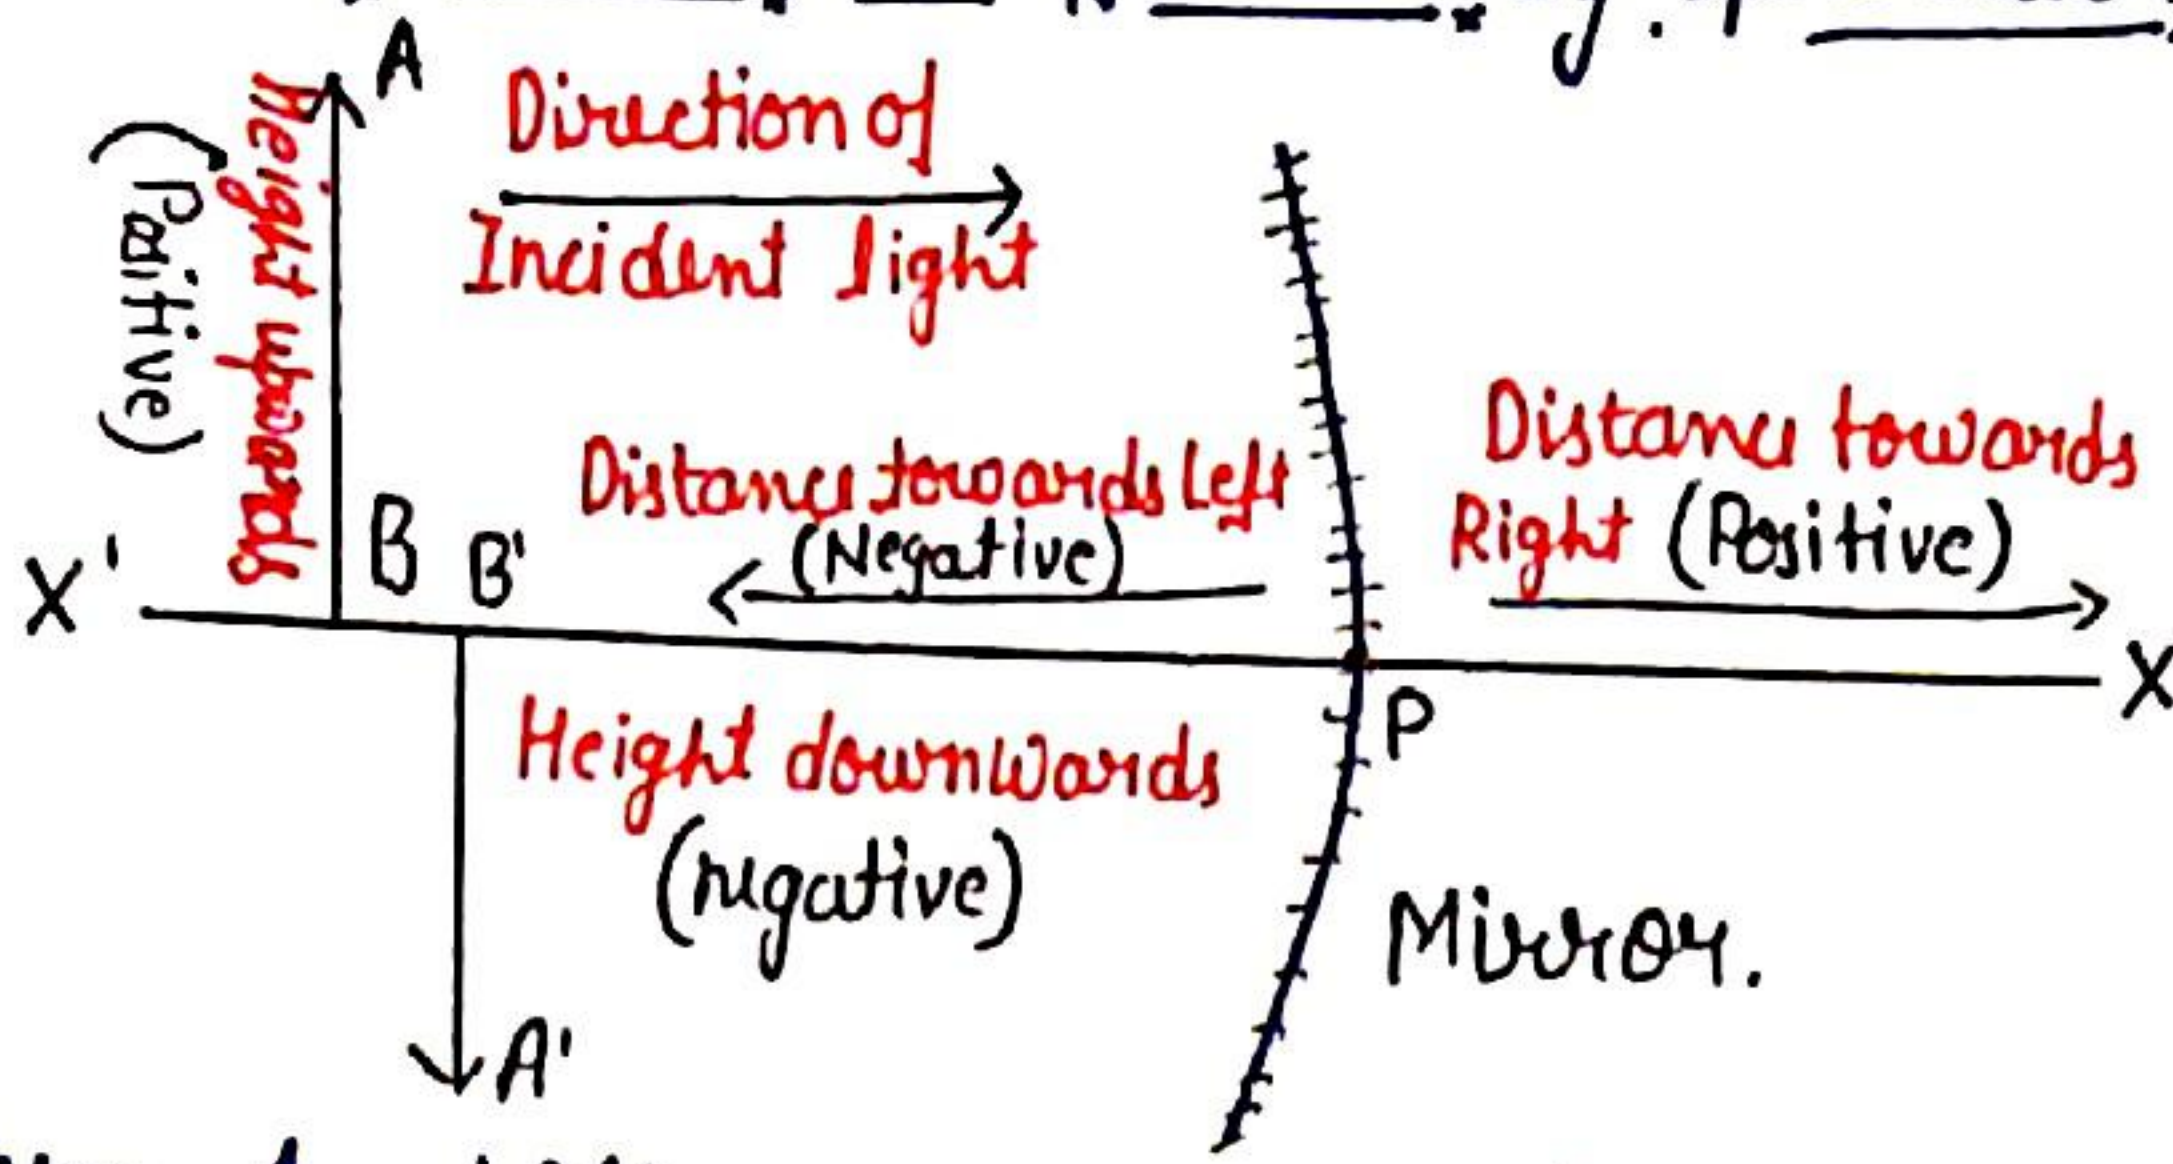 A
Direction of
Incident light
Height upwards
(Positive)
Distance towards Left
(Negative)
Distance towards
Right (Positive)
X'
B
B'
X
P
Height downwards
(negative)
A'
Mirror.